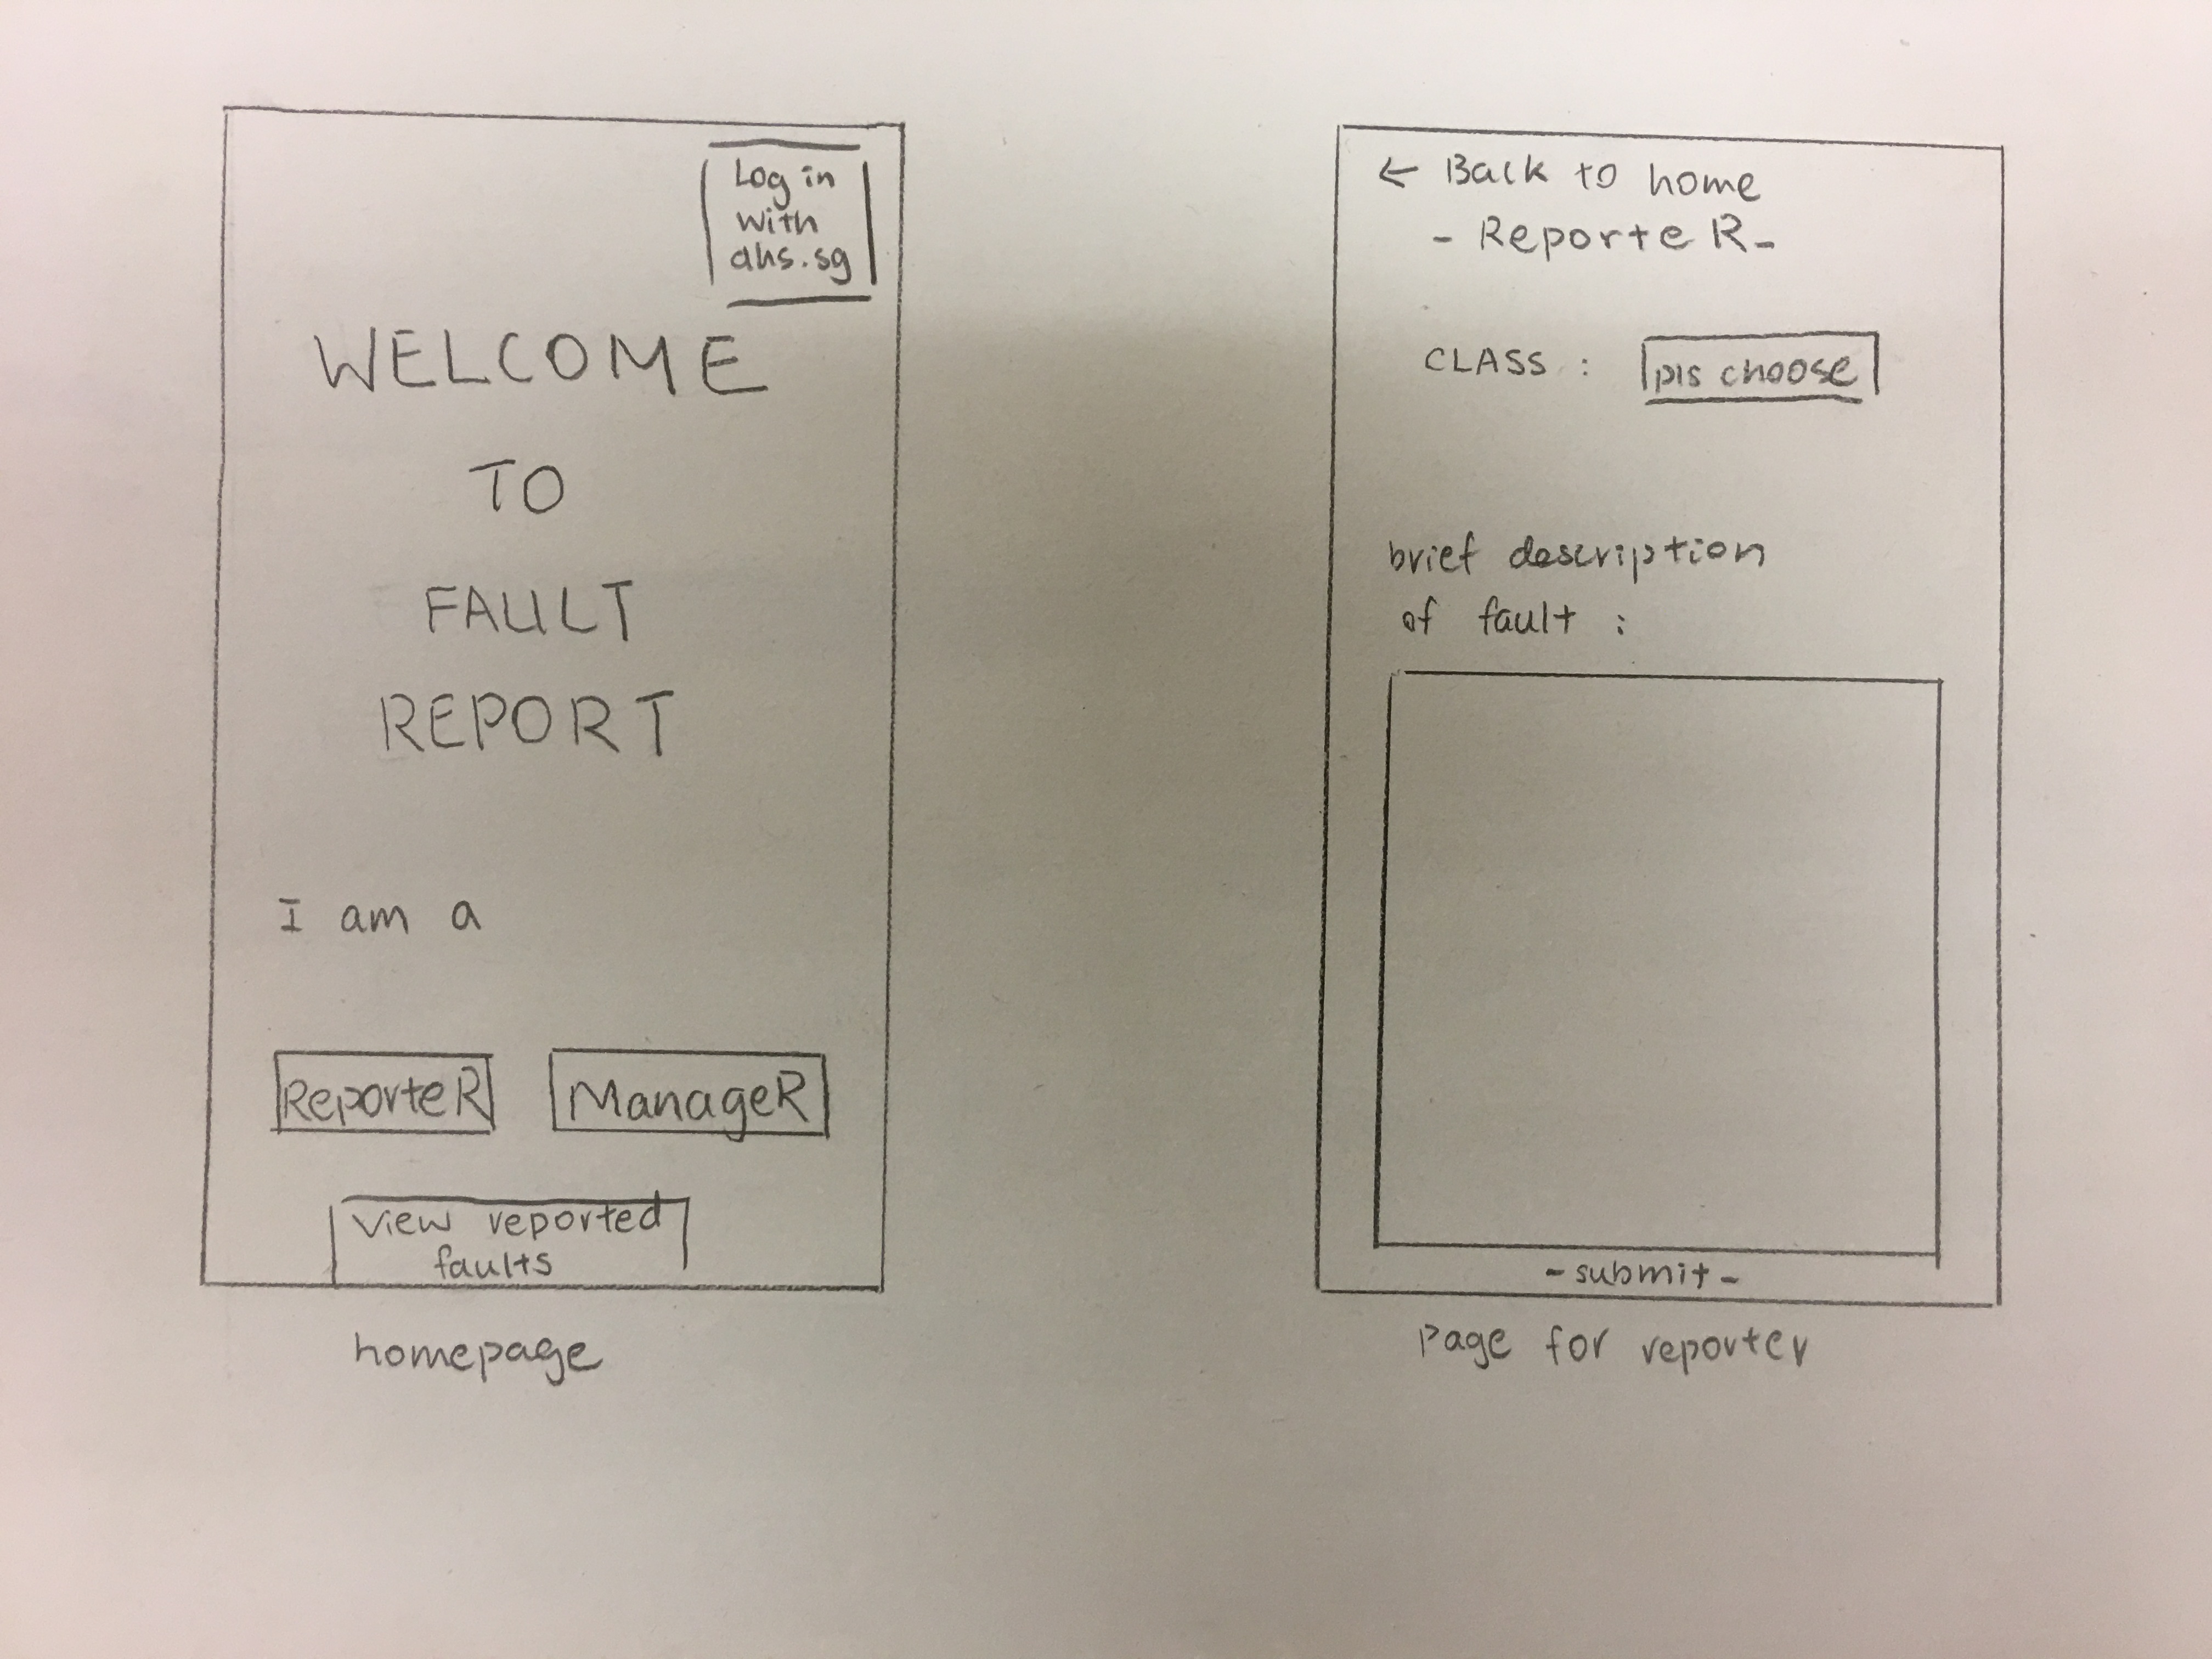 Log in
with
ahs.sg
WELCOME
TO
FAULT
REPORT
I am a
ReporteR
ManageR
View reported
faults
homepage
← Back to home
- ReporteR -
CLASS :
pls choose
brief description
of fault :
- submit -
Page for reporter